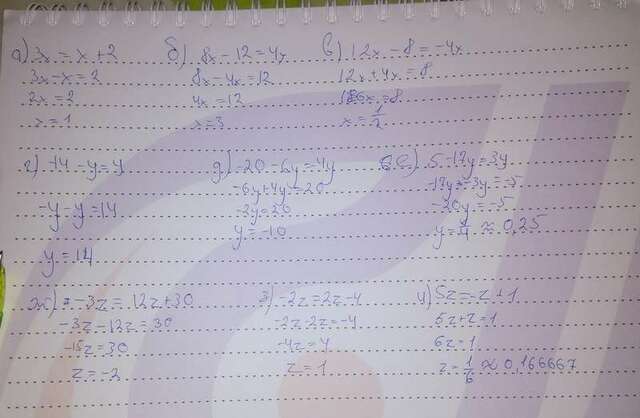 а) 3x = x + 2 б) 8x - 12 = 4x в) 12x - 8 = -4x
3x - x = 2 8x - 4x = 12 12x + 4x = 8
2x = 2 4x = 12 16x = 8
x = 1 x = 3 x = 1/2
г) -14 - y = y д) -20 - 6y = 4y е) 5 - 17y = 3y
-6y + 4y = 20 -17y - 3y = -5
-y - y = 14 -2y = 20 -20y = -5
y = 14 y = -10 y = 1/4 ≈ 0,25
ж) -3z = 12z + 30 з) -2z = 2z - 4 и) 5z = -z + 1
-3z - 12z = 30 -2z - 2z = -4 5z + z = 1
-15z = 30 -4z = 4 6z = 1
z = -2 z = 1 z = 1/6 ≈ 0,166667